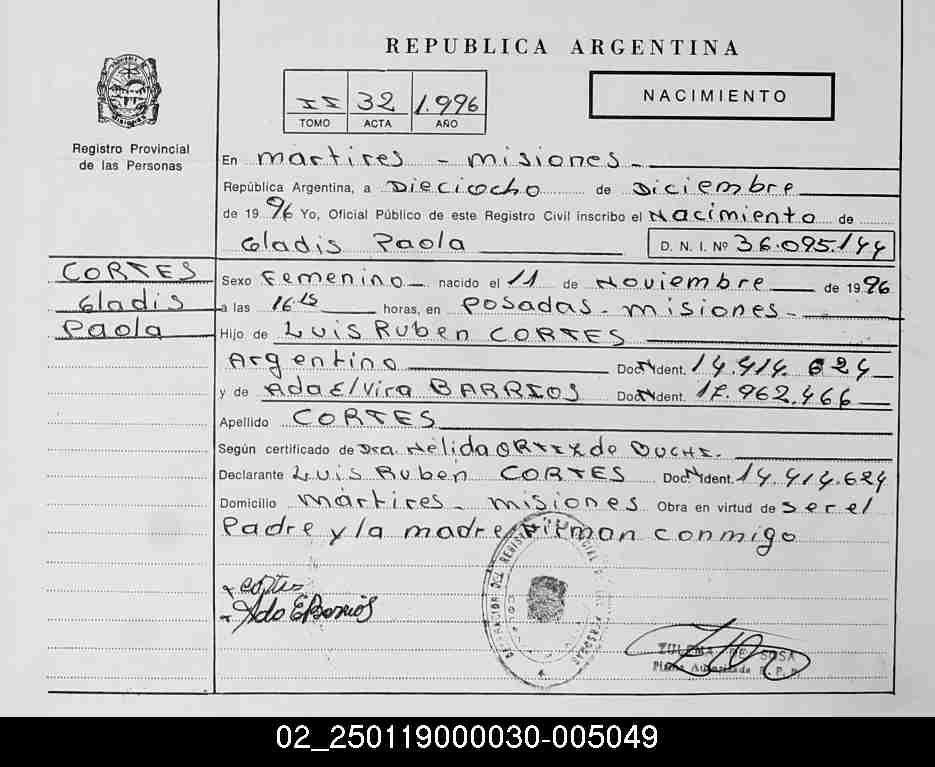 REPUBLICA ARGENTINA
II 32 1.996
TOMO ACTA AÑO
NACIMIENTO
Registro Provincial
de las Personas
En martires - misiones -
República Argentina, a Dieciocho de Diciembre
de 19 96 Yo, Oficial Público de este Registro Civil inscribo el Nacimiento de
Gladis Paola D. N. I. Nº 36.095.144
CORTES
Gladis
Paola
Sexo Femenino nacido el 11 de Noviembre de 19 96
a las 16.15 horas, en Posadas - misiones -
Hijo de Luis Ruben CORTES
Argentino Doc. Ident. 14.414.624
y de Ada Elvira BARRIOS Doc. Ident. 17.962.466
Apellido CORTES
Según certificado de Dra. Nelida ORTIZ de
Declarante Luis Ruben CORTES Doc. Ident. 14.414.624
Domicilio mártires - misiones Obra en virtud de ser el
Padre y la madre Firman conmigo
ZULEMA DE SOSA
02_250119000030-005049